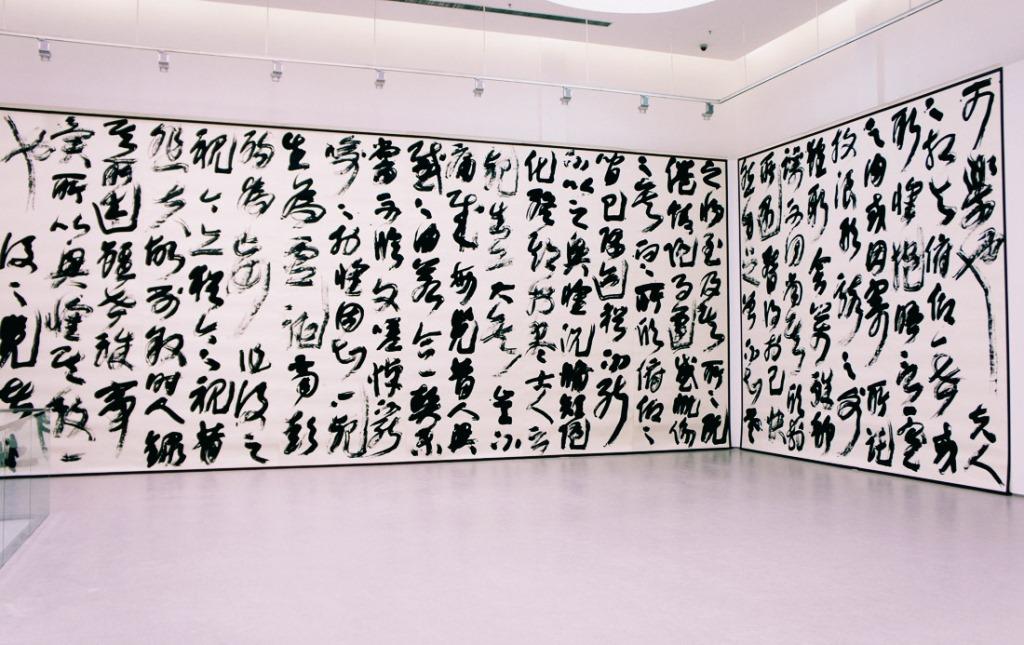 可樂也夫人
之相與俯仰一世或
取諸懷抱悟言一室
之內或因寄所託
放浪形骸之外
雖取舍萬殊靜
躁不同當其欣於
所遇暫得於己快
然自足不知老
之將至及其所之既
倦情隨事遷感慨係
之矣向之所欣俯仰之
間已為陳迹猶不能
不以之興懷況脩短隨
化終期於盡古人云
死生亦大矣豈不
痛哉每覽昔人興
感之由若合一契未
嘗不臨文嗟悼不能
喻之於懷固知一死
生為虛誕齊彭
殤為妄作後之
視今亦猶今之視昔
悲夫故列敘時人錄
其所述雖世殊事
異所以興懷其致
一也後之覽者